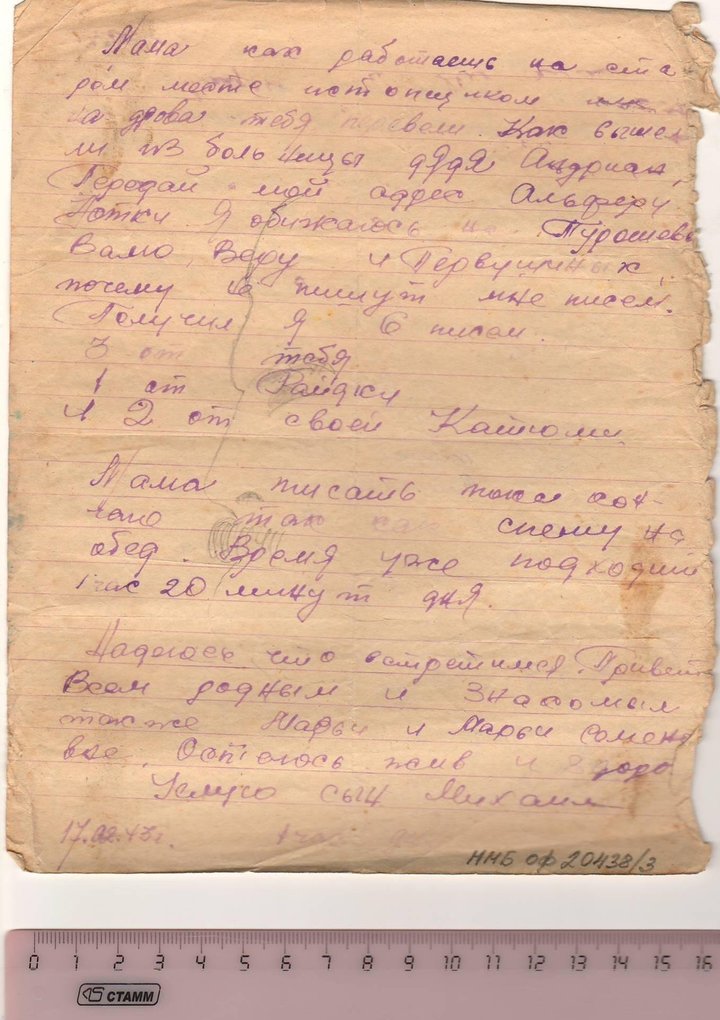 Мама как работаешь на ста
ром месте истопщиком
на дрова тебя перевели. Как вышел
ли из больницы дядя Андриан,
Передай мой адрес Альферу
Я обижаюсь на
Валю, Веру и Первушиных,
почему не пишут мне писем.
Получил я 6 писем.
3 от тебя
1 от Райдки
и 2 от своей Катюши
Мама писать пока кон-
чаю так как спешу на
обед. Время уже подходит
1 час 20 минут дня.
Надеюсь что встретимся. Привет
Всем родным и знакомым
также Марьи и Марьи Семено
вне. Остаюсь жив и здоро
сын Михаил
17.02.43г. 1 час
ННБ ОФ 20438/3
0 1 2 3 4 5 6 7 8 9 10 11 12 13 14 15 16
СТАММ